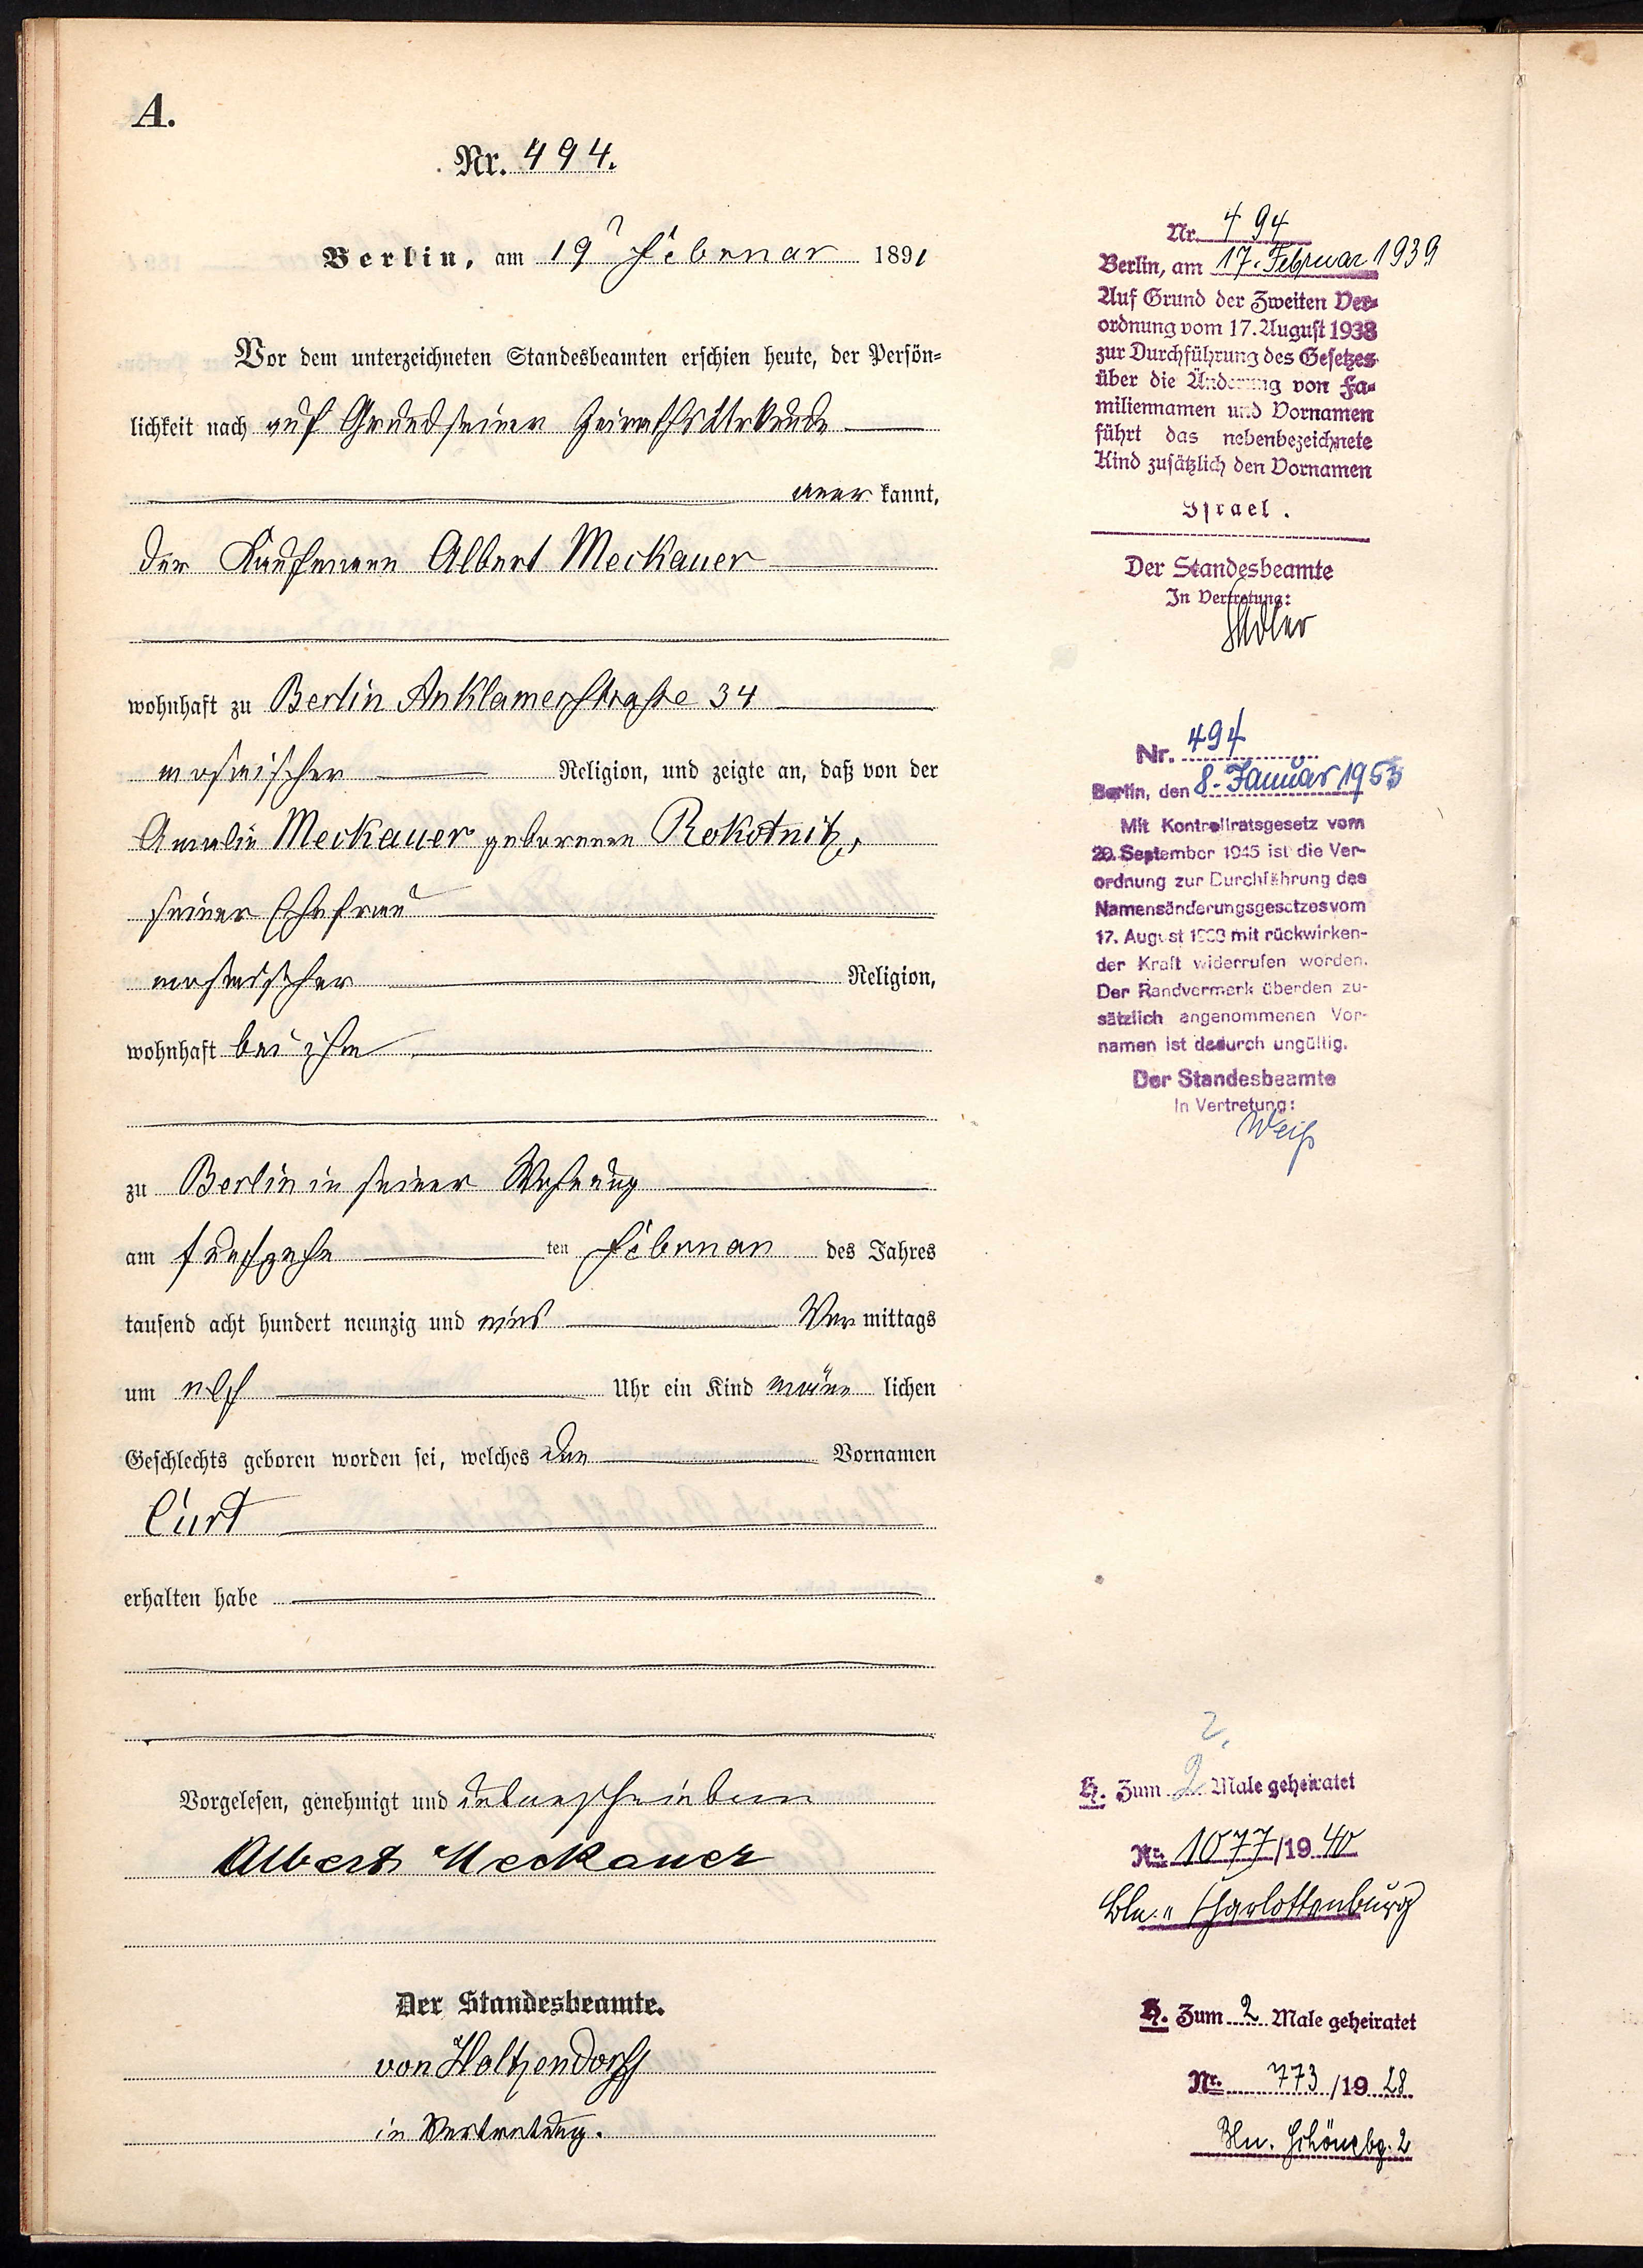 A.
Nr. 494.
Berlin, am 19ᵗ Februar 1891
Vor dem unterzeichneten Standesbeamten erschien heute, der Persön=
lichkeit nach auf Grund seiner Heirathsurkunde
aner kannt,
der Kaufmann Albert Meckauer
wohnhaft zu Berlin Anklamerstraße 34
mosaischer Religion, und zeigte an, daß von der
Amalie Meckauer geborenen Rokotnitz,
seiner Ehefrau
mosaischer Religion,
wohnhaft bei ihm
zu Berlin in seiner Wohnung
am fünfzehn ten Februar des Jahres
tausend acht hundert neunzig und eins Vor mittags
um elf Uhr ein Kind männ lichen
Geschlechts geboren worden sei, welches den Vornamen
Curt
erhalten habe
Vorgelesen, genehmigt und unterschrieben
Albert Meckauer
Der Standesbeamte.
von Holtzendorff
in Vertretung.
Nr. 494
Berlin, am 17. Februar 1939
Auf Grund der Zweiten Ver=
ordnung vom 17. August 1938
zur Durchführung des Gesetzes
über die Änderung von Fa=
miliennamen und Vornamen
führt das nebenbezeichnete
Kind zusätzlich den Vornamen
Israel.
Der Standesbeamte
In Vertretung:
Adler
Nr. 494
Berlin, den 8. Januar 1953
Mit Kontrollratsgesetz vom
20. September 1945 ist die Ver-
ordnung zur Durchführung des
Namensänderungsgesetzes vom
17. August 1938 mit rückwirken-
der Kraft widerrufen worden.
Der Randvermerk über den zu-
sätzlich angenommenen Vor-
namen ist dadurch ungültig.
Der Standesbeamte
In Vertretung:
Weiß
2.
H. Zum 2 Male geheiratet
Nr. 1077/1940
Bln.-Charlottenburg
H. Zum 2 Male geheiratet
Nr. 773/1928
Bln. Schönebg. 2